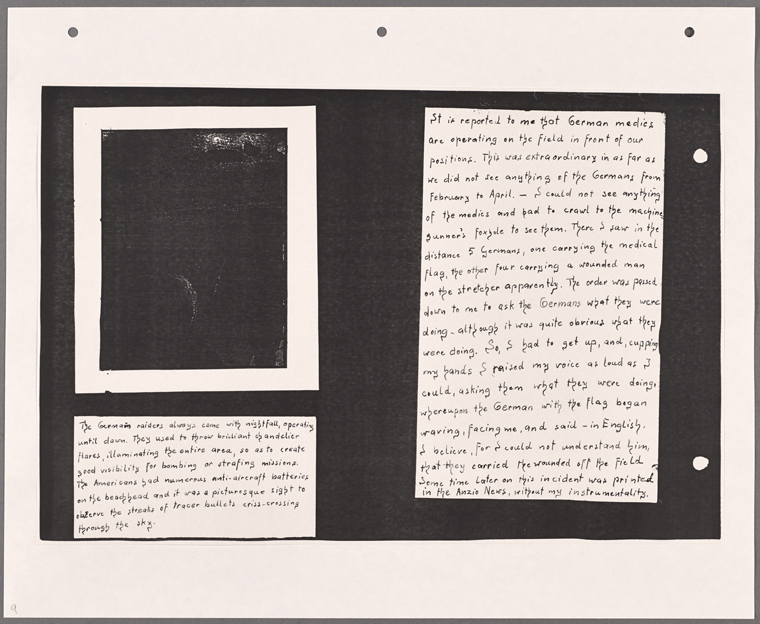 The German raiders always come with nightfall, operating
until dawn. They used to throw brilliant chandelier
flares, illuminating the entire area, so as to create
good visibility for bombing or strafing missions.
The Americans had numerous anti-aircraft batteries
on the beachhead and it was a picturesque sight to
observe the streaks of tracer bullets criss-crossing
through the sky.
It is reported to me that German medics
are operating on the field in front of our
positions. This was extraordinary in as far as
we did not see anything of the Germans from
February to April. — I could not see anything
of the medics and had to crawl to the machine
gunner's foxhole to see them. There I saw in the
distance 5 Germans, one carrying the medical
flag, the other four carrying a wounded man
on the stretcher apparently. The order was passed
down to me to ask the Germans what they were
doing - although it was quite obvious what they
were doing. So, I had to get up, and, cupping
my hands I raised my voice as loud as I
could, asking them what they were doing,
whereupon the German with the flag began
waving, facing me, and said - in English,
I believe, for I could not understand him,
that they carried the wounded off the field
Some time later on this incident was printed
in the Anzio News, without my instrumentality.
9